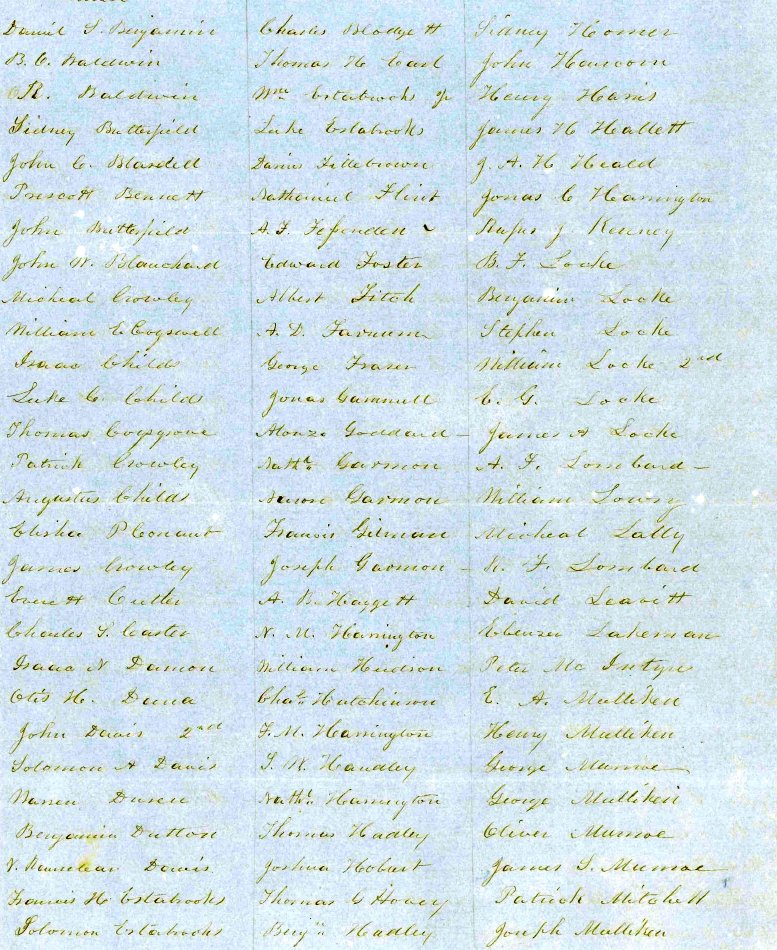 Daniel S. Benjamin
B. C. Baldwin
R. Baldwin
Sidney Butterfield
John C. Blasdell
Prescott Bennett
John Butterfield
John W. Blanchard
Micheal Crowley
William E Cogswell
Isaac Childs
Luke C. Childs
Thomas Cosgrove
Patrick Crowley
Augustus Childs
Elisha P Conant
James Crowley
Everett Cutler
Charles S. Caster
Isaac N Damon
Otis H. Dana
John Davis 2nd
Solomon A Davis
Warren Duren
Benjamin Dutton
V. Davis
Francis H Estabrooks
Solomon Estabrooks
Charles Blodgett
Thomas H Earl
Wm Estabrooks Jr
Luke Estabrooks
Darius Fillebrown
Nathaniel Flint
A. F. Fessenden
Edward Foster
Albert Fitch
A. D. Farnum
George Fraser
Jonas Gammell
Alonzo Goddard
Nathl. Garmon
Aaron Garmon
Francis Gilman
Joseph Garmon
A. B. Haggett
N. M. Harrington
William Hudson
Chas. Hutchinson
F. M. Harrington
S. W. Handley
Nathl. Harrington
Thomas Hadley
Joshua Hobart
Thomas G Hovey
Benjn. Hadley
Sidney Homer
John Hancom
Henry Harris
James H Hallett
J. A. H Heald
Jonas C Harrington
Rufus J Kenney
B. F. Locke
Benjamin Locke
Stephen Locke
William Locke 2nd
C. G. Locke
James A Locke
A. F. Lombard
William Lowry
Micheal Lally
N. F. Lombard
David Leavitt
Ebenzer Lakeman
Peter Mc Intyre
E. A. Mulliken
Henry Mulliken
George Munroe
George Mulliken
Oliver Munroe
James S. Munroe
Patrick Mitchell
Joseph Mulliken